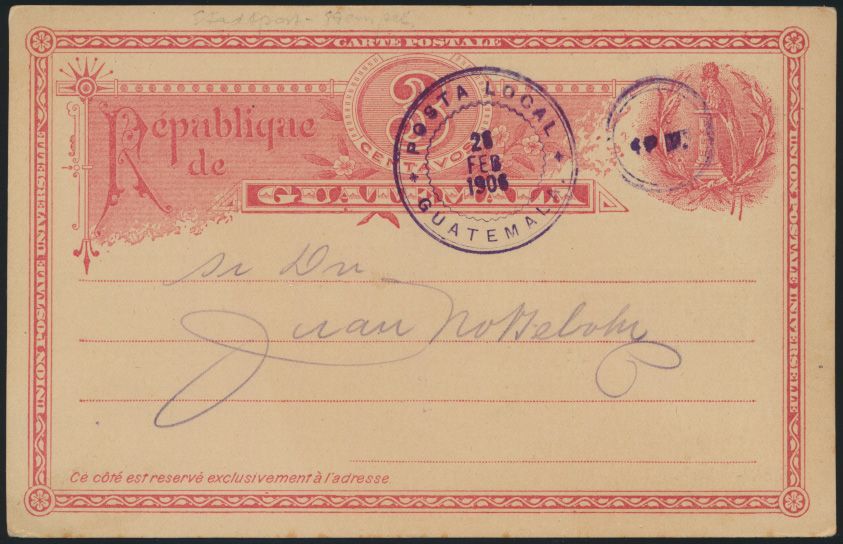 Stadtpost-Stempel
CARTE POSTALE
République
de
3
CENTAVOS
GUATEMALA
POSTA LOCAL
28
FEB
1906
GUATEMALA
UNION POSTALE UNIVERSELLE
UNION POSTALE UNIVERSELLE
Sr Dn
Juan Nottebohm
Ce côté est reservé exclusivement à l'adresse